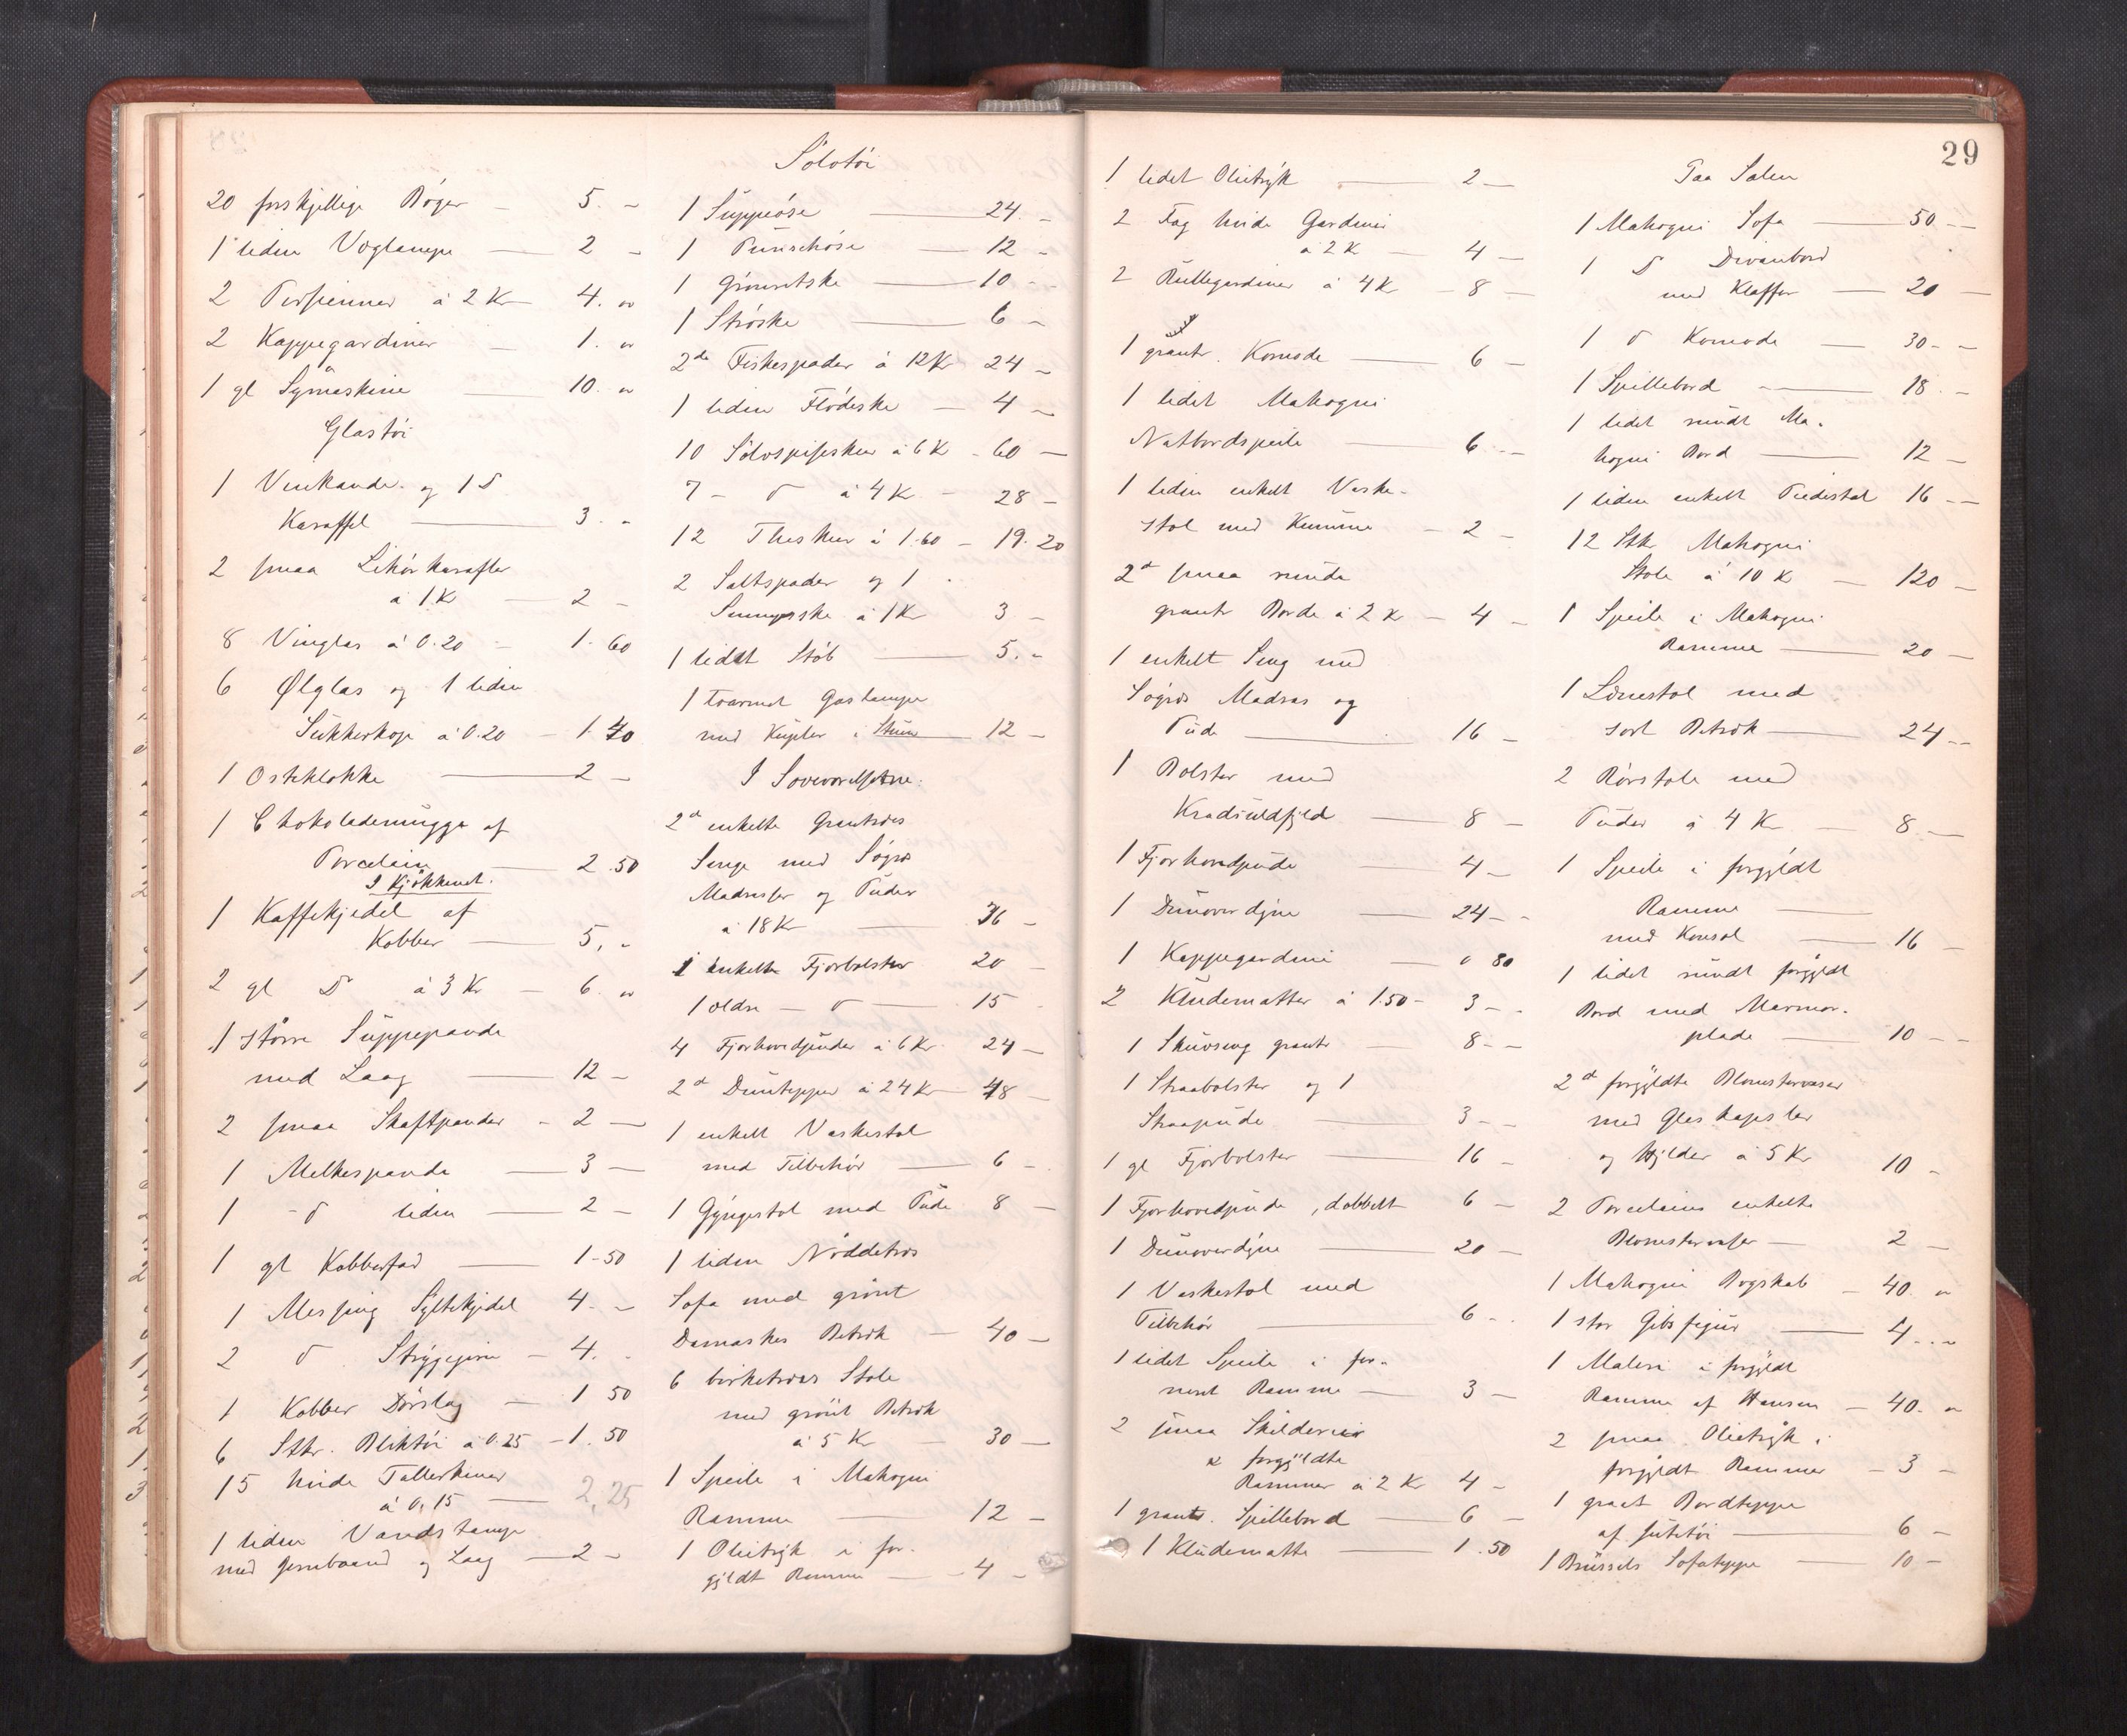 20 forskjellige Bøger — 5. –
1 liden Voglampe — 2 –
2 Persienner à 2 Kr — 4. "
2 Kappegardiner — 1. "
1 gl Symaskine — 10. "
Glastøi
1 Vinkande og 1 d
Karaffel — 3. "
2 smaa Likørkarafler
à 1 K — 2 –
8 Vinglas à 0.20 – 1.60
6 Ølglas og 1 liden
Sukkerkop à 0.20 – 1.40
1 Osteklokke — 2 –
1 Chokolademugge af
Porcelain — 2.50
I Kjøkkenet.
1 Kaffekjedel af
Kobber — 5, "
2 gl Do à 3 Kr – 6. "
1 større Suppepande
med Laag — 12 –
2 smaa Skaftpander – 2 —
1 Melkespande — 3 —
1 – d liden — 2 –
1 gl Kobberfad — 1-50
1 Messing Syltekjedel 4. –
2 d Strygejern – 4. –
1 Kobber Dørslag — 1 50
6 Stkr. Bliktøi à 0.25 – 1.50
15 hvide Tallerkener
à 0,15 — 2,25
1 liden Vandstampe
med Jernbaand og Laag — 2 –
Sølvtøi
1 Suppeøse — 24. –
1 Punschøse — 12 –
1 Grønsetske — 10 –
1 Strøske — 6 –
2de Fiskespader à 12 Kr 24 –
1 liden Flødeske — 4 –
10 Sølvspiseskeer à 6 K – 60 —
7 – d à 4 K – 28 –
12 Theskeer à 1.60 – 19.20
2 Saltspader og 1
Sennepske à 1 Kr 3 –
1 lidet Støb — 5. –
1 toarmet Gaslampe
med Kupler i Stuen 12 –
I Soveværelserne.
2d enkelte Grantræs
Senge med Søgræs
Madrasser og Puder
à 18 Kr — 36 –
1 enkelt Fjorbolster 20 –
1 ældre – d — 15 –
4 Fjorhovedpuder à 6 Kr. 24 –
2d Duntepper à 24 Kr – 48 –
1 enkelt Vaskestol
med Tilbehør — 6 –
1 Gyngestol med Pude 8 —
1 liden Nøddetræs
Sofa med grønt
Damaskes Betræk — 40 –
6 birketræs Stole
med grønt Betræk
à 5 Kr — 30 —
1 Speile i Mahogni
Ramme — 12 –
1 Olietryk i for-
gyldt Ramme — 4 –
29
1 lidet Olietryk — 2 –
2 Fag hvide Gardiner
à 2 K — 4 –
2 Rullegardiner à 4 K – 8 –
1 grantr. Komode — 6 –
1 lidet Mahogni
Natbordspeile — 6 –
1 liden enkelt Vaske-
stol med Kumme – 2 –
2d smaa runde
grantr Borde à 2 K – 4 –
1 enkelt Seng med
Søgræs Madras og
Pude — 16 –
1 Bolster med
Kraduldfjeld — 8 –
1 Fjorhovedpude — 4 –
1 Dunoverdyne — 24 –
1 Kappegardine — 0 80
2 Kludematter à 1.50 – 3 –
1 Skuvseng grantr — 8 –
1 Straabolster og 1
Straapude — 3 –
1 gl Fjorbolster — 16 –
1 Fjorhovedpude, dobbelt 6 –
1 Dunoverdyne — 20 –
1 Vaskestol med
Tilbehør — 6 –
1 lidet Speile i for-
neret Ramme — 3 –
2 smaa Skilderier
forgyldte
Rammer à 2 Kr 4 –
1 grantr. Spillebord — 6 –
1 Kludematte — 1.50
Paa Salen
1 Mahogni Sofa — 50 –
1 d Divanbord
med Klaffer — 20 –
1 d Komode — 30 –
1 Spillebord — 18 –
1 lidet rundt Ma-
hogni Bord — 12 –
1 liden enkelt Piedestal 16 –
12 Stk Mahogni
Stole à 10 K — 120 –
1 Speile i Mahogni
Ramme — 20 –
1 Lænestol med
sort Betræk — 24 –
2 Rørstole med
Puder à 4 Kr — 8 —
1 Speile i forgyldt
Ramme —
med Konsol — 16 –
1 lidet rundt forgyldt
Bord med Marmor-
plade — 10 –
2d forgyldte Blomstervaser
med Glaskapsler
og Hylder à 5 Kr 10 –
2 Porcelains enkelte
Blomstervaser — 2 –
1 Mahogni Bogskab – 40 "
1 stor Gibsfigur — 4 –
1 Maleri i forgyldt
Ramme af Hansen – 40. "
2 smaa Olietryk i
forgyldt Rammer – 3 –
1 graat Bordteppe
af Jutetøi — 6 –
1 Brüssels Sofateppe — 10 –